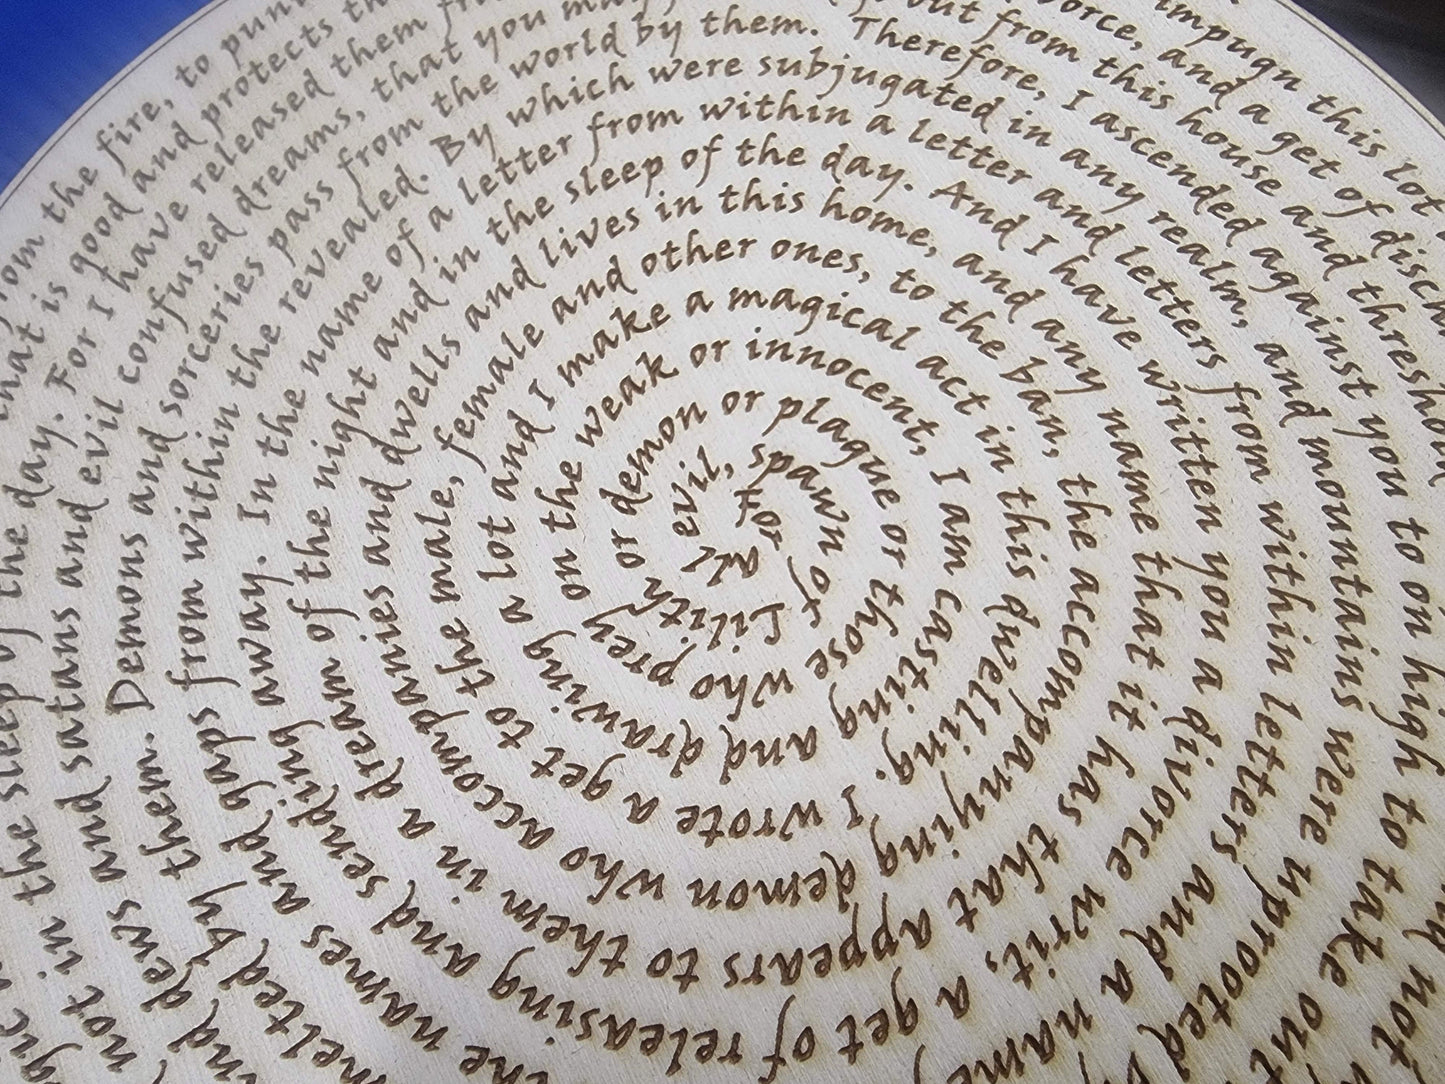 For all evil, spawn of Lilith or demon or plague or those who prey on the weak or innocent, I am casting and drawing a lot and I make a magical act in this dwelling. I wrote a get to the male, female and other ones, to the ban, the accompanying demon who accompanies and dwells and lives in this home, and any name that it has that appears to them in a dream of the night and in the sleep of the day. And I have written you a divorce writ, a get of releasing and sending away. In the name of a letter from within a letter and letters from within letters and a name
the names and gaps from within the revealed. By which were subjugated in any realm, and mountains were uprooted
melted by them. Demons and sorceries pass from the world by them. Therefore, I ascended against you to on high to take out
dews and satans and evil confused dreams, that you may
out from this house and threshold
not
not in the sleep of the day. For I have released them
and a get of
is good and protects
impugn this lot
from the fire, to